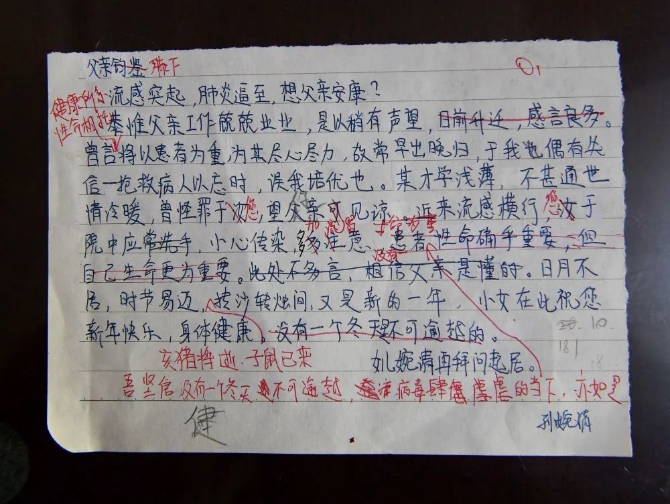 父亲钧鉴 膝下
流感突起，肺炎逼至，想父亲安康？
恭惟父亲工作兢兢业业，是以稍有声望，日前升迁，感言良多。
曾言将以患者为重，为其尽心尽力，故常早出晚归，于我也偶有失
信—抢救病人以忘时，误我培优也。某才学浅薄，不甚通世
情冷暖，曾怪罪于汝您，望父亲可见谅。近来流感横行，您汝于
院中应常洗手，小心传染，多注意。患者性命确乎重要，但
自己生命更为重要。此处不多言，相信父亲是懂的。日月不
居，时节易迈，转烛间，又是新的一年，小女在此祝您
新年快乐，身体健康。没有一个冬天是不可逾越的。
亥猪将逝 子鼠已来
儿婉清再拜问起居。
吾坚信没有一个冬天不可逾越，病毒肆虐的当下，亦如是
健